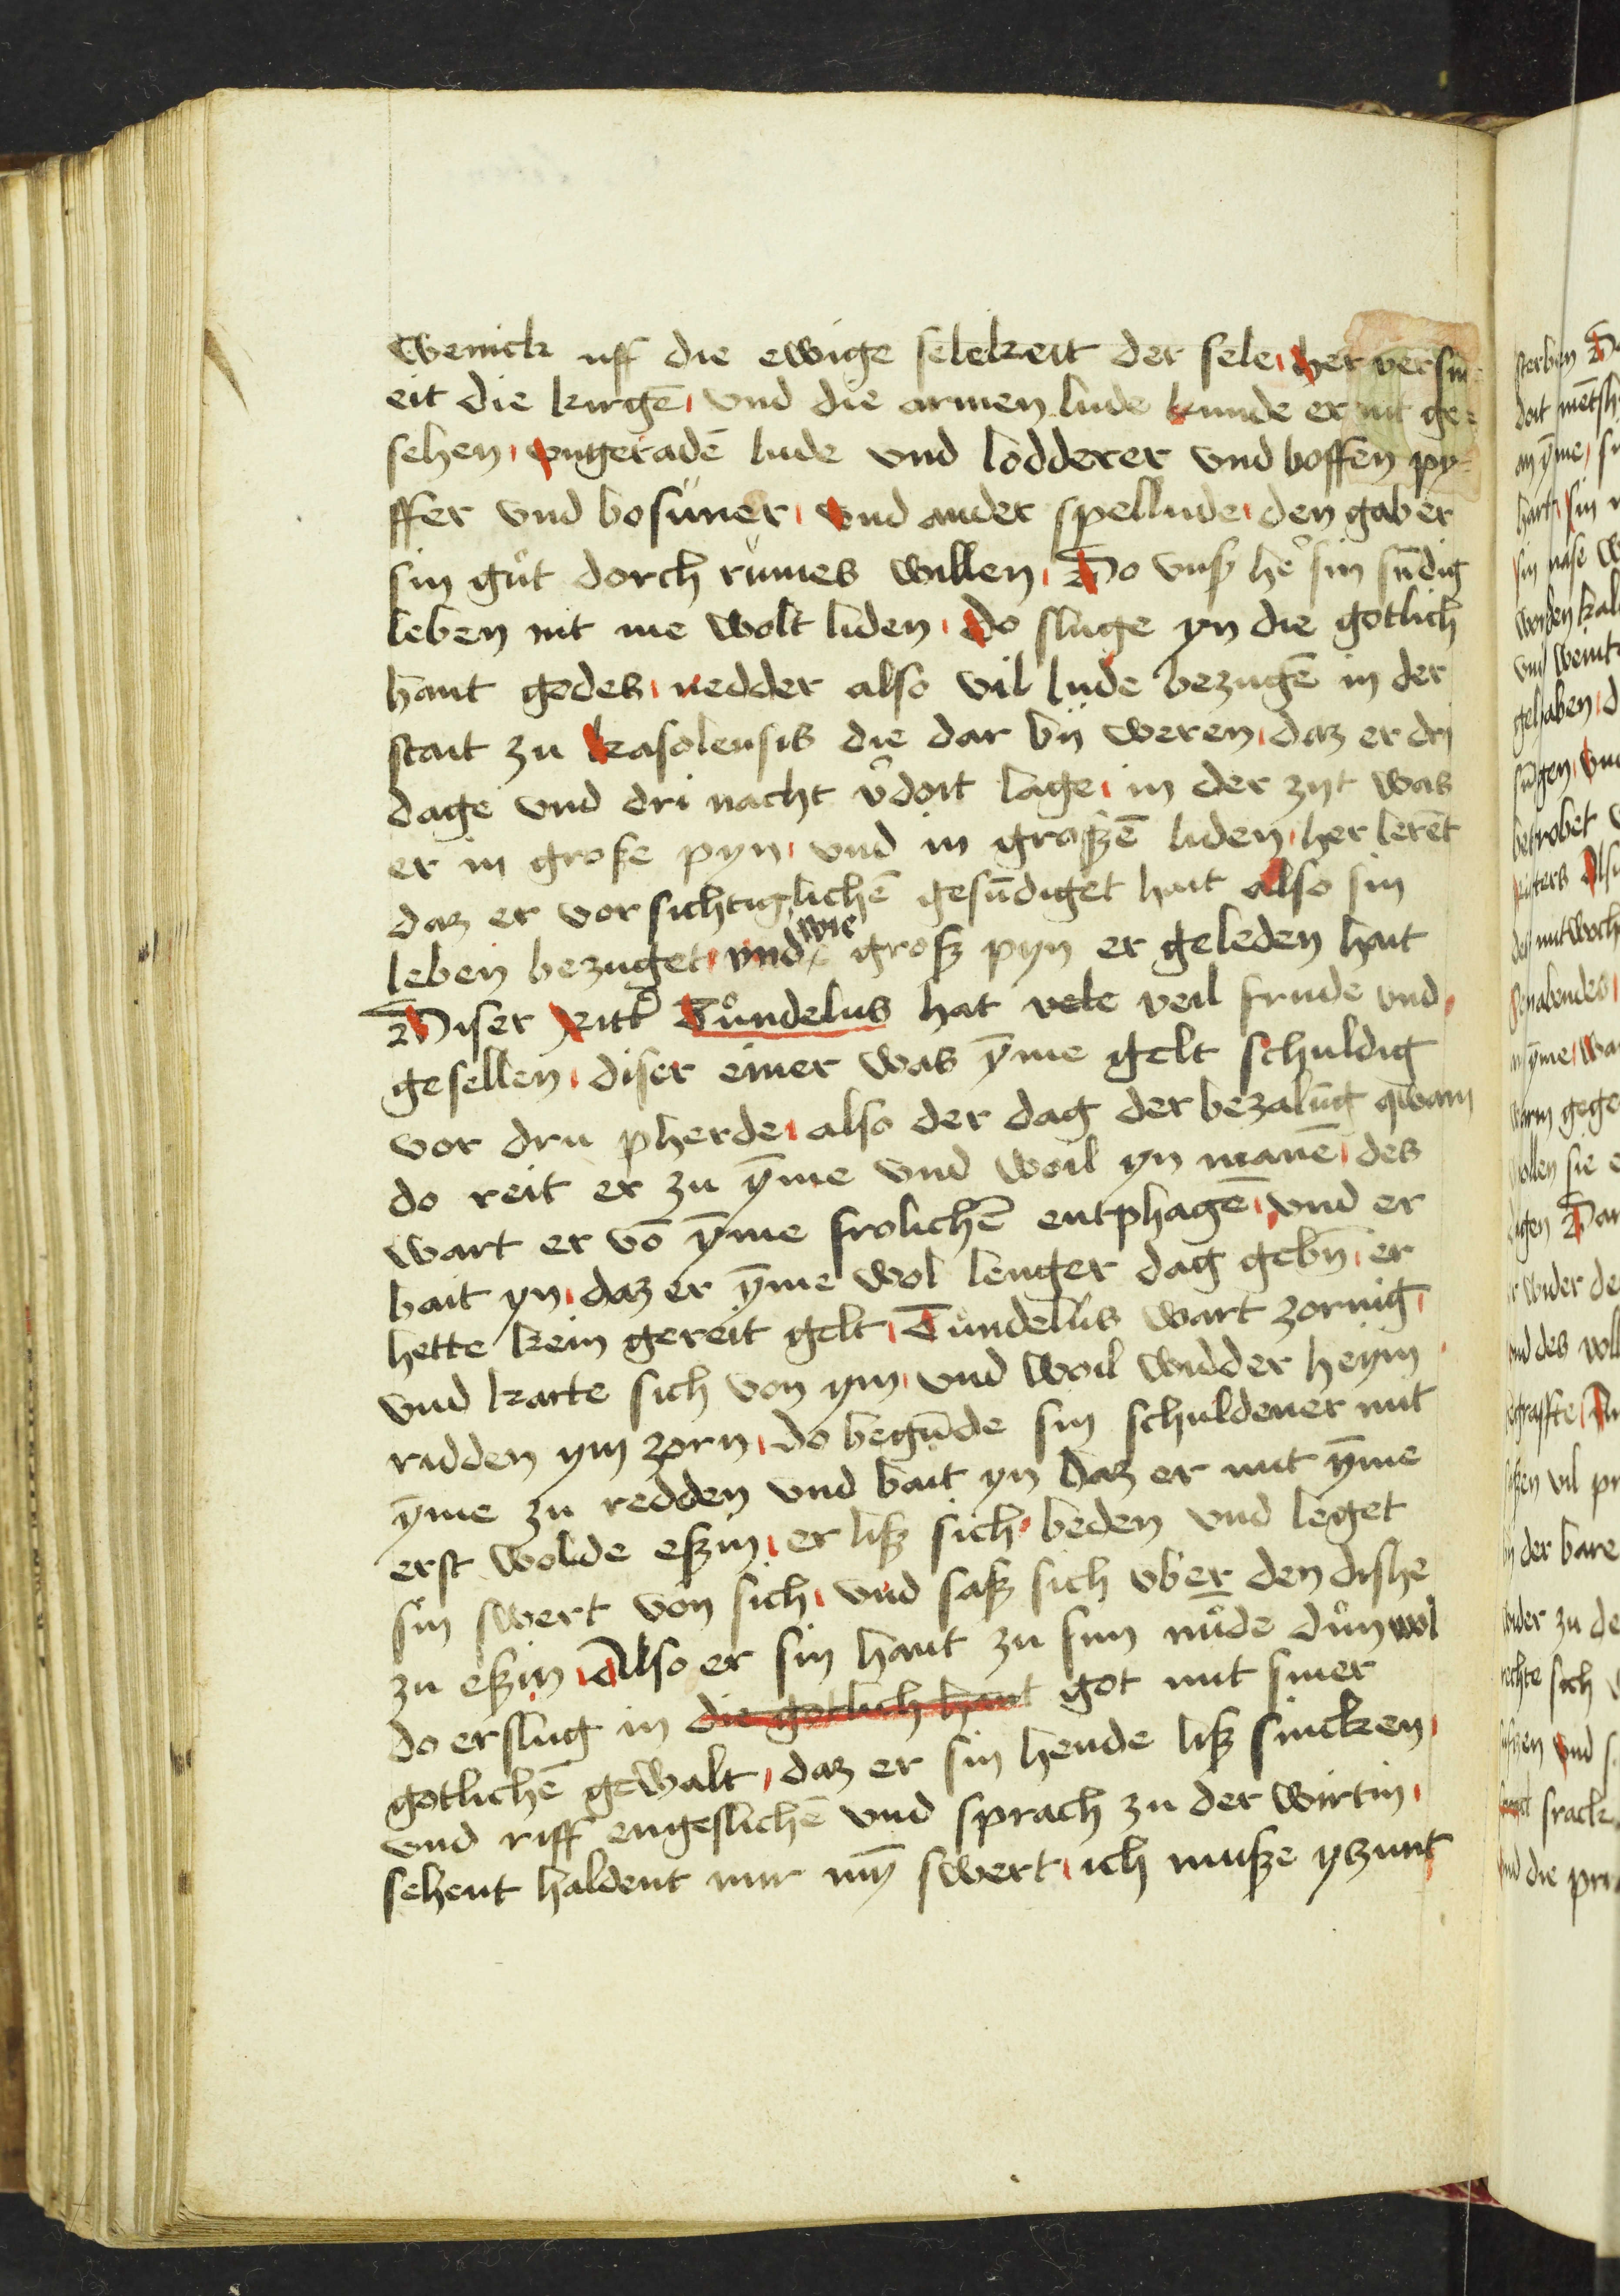 wenick uff die ewige selekeit der sele her versm
eit die kirgē und die armen lude kunde er nit ge-
sehen ungeradē lude und lodderer und boffen py-
ffer und bosuner und ander spellude den gab er
sin gůt dorch rumes willen Do unß hē sin sūdig
leben nit me wolt liden do sluge yn die gotlich
hant godes nedder also vil lude bezugē in der
stait zu kasolensis die dar bÿ weren daz er dri
dage und dri nacht v̄doit lage in der zyt was
er in große pyn und in graßzē liden her lerēt
daz er vor sichtiglichē gesūdiget hait also sin
leben bezuget und wie groß pyn er geleden hait
Diser Ritt̄ Tůndelus hat vele veil frude und
gesellen diser einer was ȳme gelt schuldig
vor dru pherde also der dag der bezalūg qwam
do reit er zu ȳme und woil yn manē des
wart er vō ȳme frolichē entphagē und er
bait yn daz er ȳme wol lenger dag gebn̄ er
hette kein gereit gelt Tůndelus wart zornig
und karte sich von ym und woil widder heym
ridden ym zorn do begūde sin schuldener mit
ȳme zu redden und bait yn daz er mit ȳme
erst wolde eßin er liß sich beden und leget
sin swert von sich und saß sich uber den dishe
zu eßin Also er sin hant zu sim mūde důn wol
do erslug in die gotlich hant got mit siner
gotlichē gewalt daz er sin hende liß sincken
und riff engeslichē und sprach zu der wirtin
sehent haldent mir mȳ swert ich muße yzunt